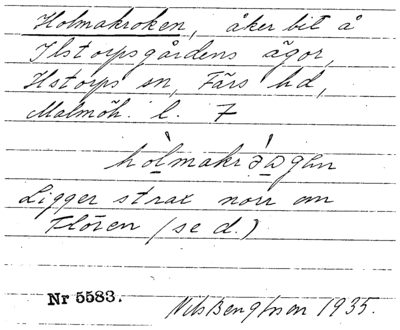 Holmakroken, åker bit å
Ilstorpsgårdens ägor,
Ilstorps sn, Färs hd,
Malmöh. l. 7
Ligger strax norr om
Flören (se d.)
Nr 5583.
Nils Bengtsson 1935.